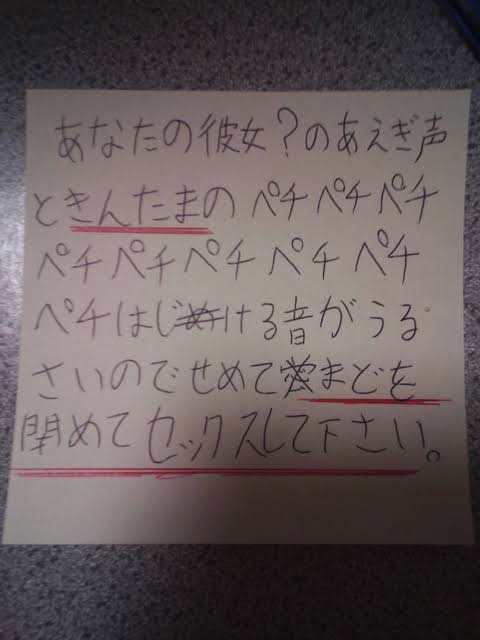 あなたの彼女?のあえぎ声
ときんたまの ペチペチペチ
ペチ ペチ ペチ ペチ ペチ
ペチはじける音がうる
さいのでせめてまどを
閉めてセックスして下さい。